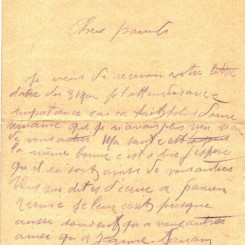 Chers parents
Je viens de recevoir votre lettre
datée du 31 que j'attendais avec
impatience car ça fait plus d'une
semaine que je n'avais plus rien reçu
de vous autres Ma santé est toujours
la même bonne c'est à dire j'espère
qu'il en soit ainsi de vous autres
Vous me dites d'écrire à
je leur écris presque
aussi souvent qu'à vous autres
ainsi qu'à Jeanne